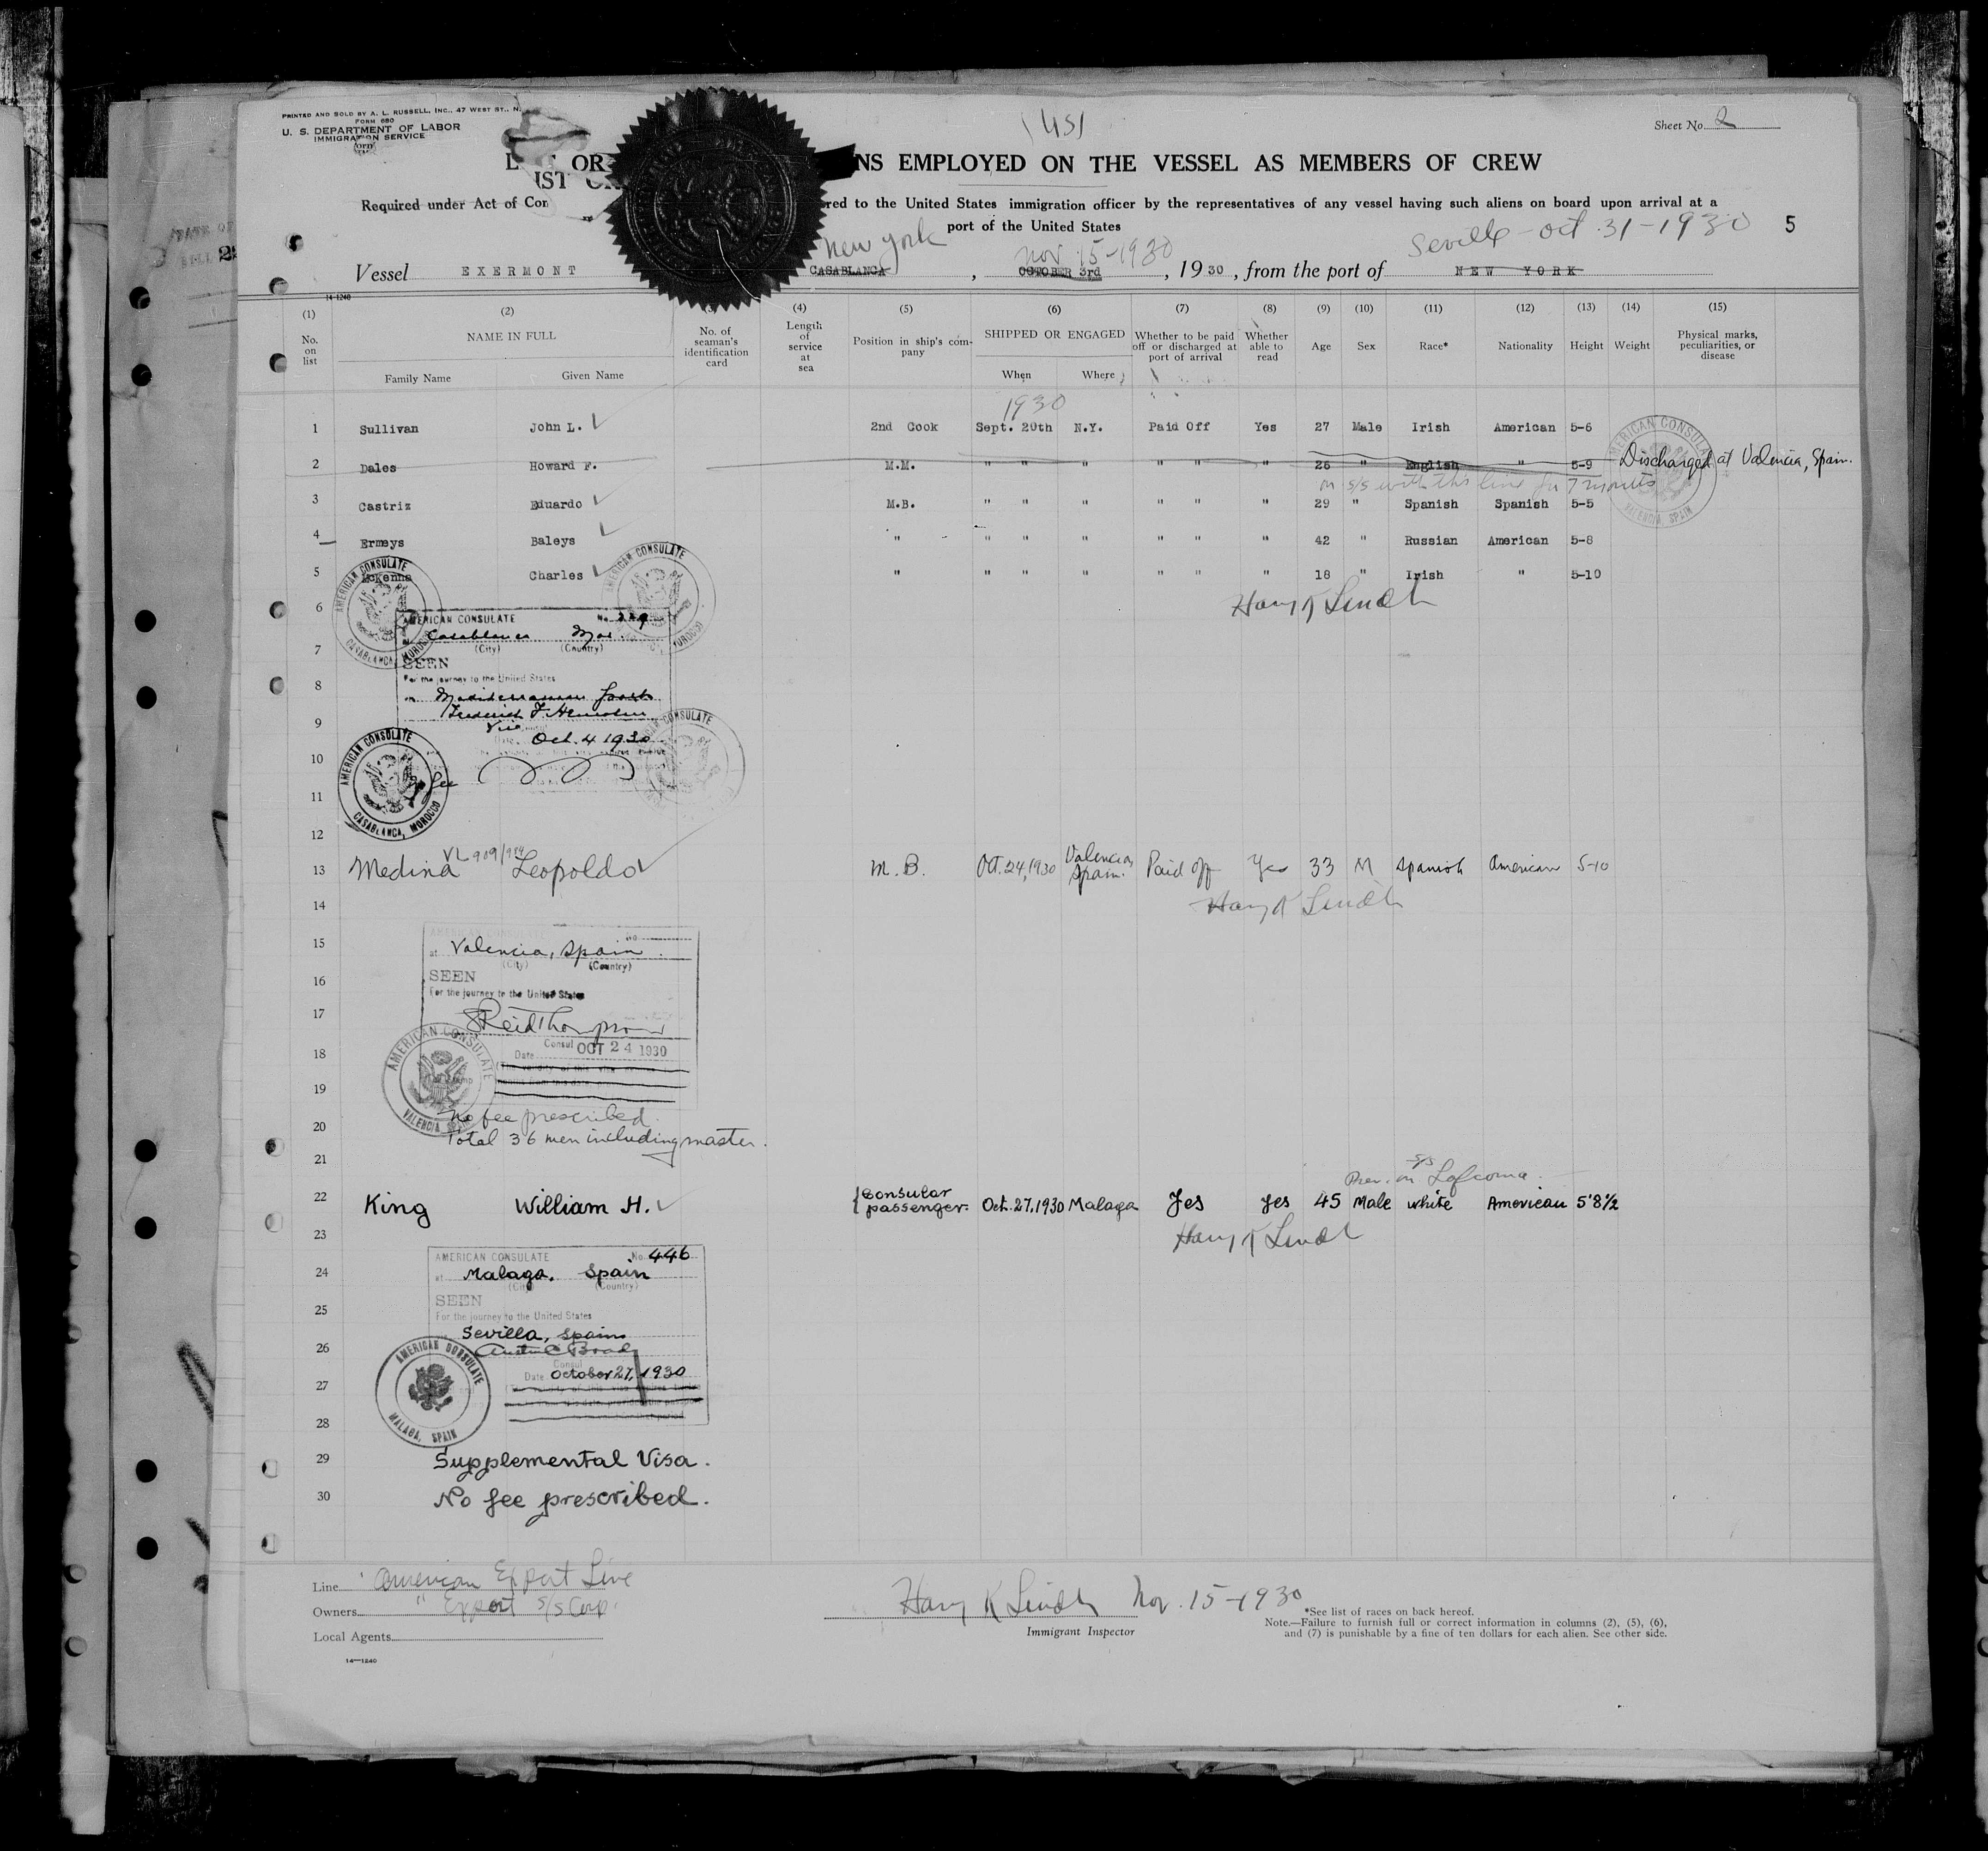 PRINTED AND SOLD BY A. L. RUSSELL, INC., 47 WEST ST., N.
FORM 680
U. S. DEPARTMENT OF LABOR
IMMIGRATION SERVICE
1451
Sheet No. 2
NS EMPLOYED ON THE VESSEL AS MEMBERS OF CREW
Required under Act of Con red to the United States immigration officer by the representatives of any vessel having such aliens on board upon arrival at a
port of the United States
5
New York Nov 15-1930 Seville - Oct 31-1930
Vessel EXERMONT CASABLANCA, OCTOBER 3rd, 1930, from the port of NEW YORK
14-1240
(1) (2) (3) (4) (5) (6) (7) (8) (9) (10) (11) (12) (13) (14) (15)
No. on list
NAME IN FULL
Family Name Given Name
No. of seaman's identification card
Length of service at sea
Position in ship's company
SHIPPED OR ENGAGED
When Where
Whether to be paid off or discharged at port of arrival
Whether able to read
Age
Sex
Race*
Nationality
Height
Weight
Physical marks, peculiarities, or disease
1930
1 Sullivan John L. 2nd Cook Sept. 20th N.Y. Paid Off Yes 27 Male Irish American 5-6
2 Dales Howard F. M.M. " " " " " " 26 " English " 5-9 Discharged at Valencia, Spain.
on s/s with this line for 7 months
3 Castriz Eduardo M.B. " " " " " " 29 " Spanish Spanish 5-5
4 Ermeys Baleys " " " " " " " 42 " Russian American 5-8
5 McKenna Charles " " " " " " " 18 " Irish " 5-10
AMERICAN CONSULATE
CASABLANCA, MOROCCO
AMERICAN CONSULATE
VALENCIA, SPAIN
6
Harry K Lindh
AMERICAN CONSULATE No. 229
Casablanca Mor.
(City) (Country)
7
SEEN
For the journey to the United States
8
on Mediterranean
9
Vice
Oct. 4 1930
10
AMERICAN CONSULATE
CASABLANCA, MOROCCO
No fee
11
12
13 Medina Leopoldo M.B. Oct. 24, 1930 Valencia, Spain. Paid off Yes 33 M Spanish American 5-10
14
Harry K Lindh
15
at Valencia, Spain
(City) (Country)
16
SEEN
For the journey to the United States
17
Reid Thompson
Consul
18
Date OCT 24 1930
19
AMERICAN CONSULATE
VALENCIA, SPAIN
No fee prescribed.
20
Total 36 men including master.
21
s/s
22 King William H. Consular passenger. Oct. 27, 1930 Malaga Yes Yes 45 Male White American 5'8½
23
Harry K Lindh
AMERICAN CONSULATE No. 446
24
at Malaga, Spain
(City) (Country)
25
SEEN
For the journey to the United States
Sevilla, Spain
26
Consul
Date October 27, 1930
27
AMERICAN CONSULATE
MALAGA, SPAIN
28
29 Supplemental Visa.
30 No fee prescribed.
Line American Export Line
Owners " Export S/S Corp.
Local Agents
Harry K Lindh Nov. 15-1930
Immigrant Inspector
*See list of races on back hereof.
Note.—Failure to furnish full or correct information in columns (2), (5), (6),
and (7) is punishable by a fine of ten dollars for each alien. See other side.
14—1240